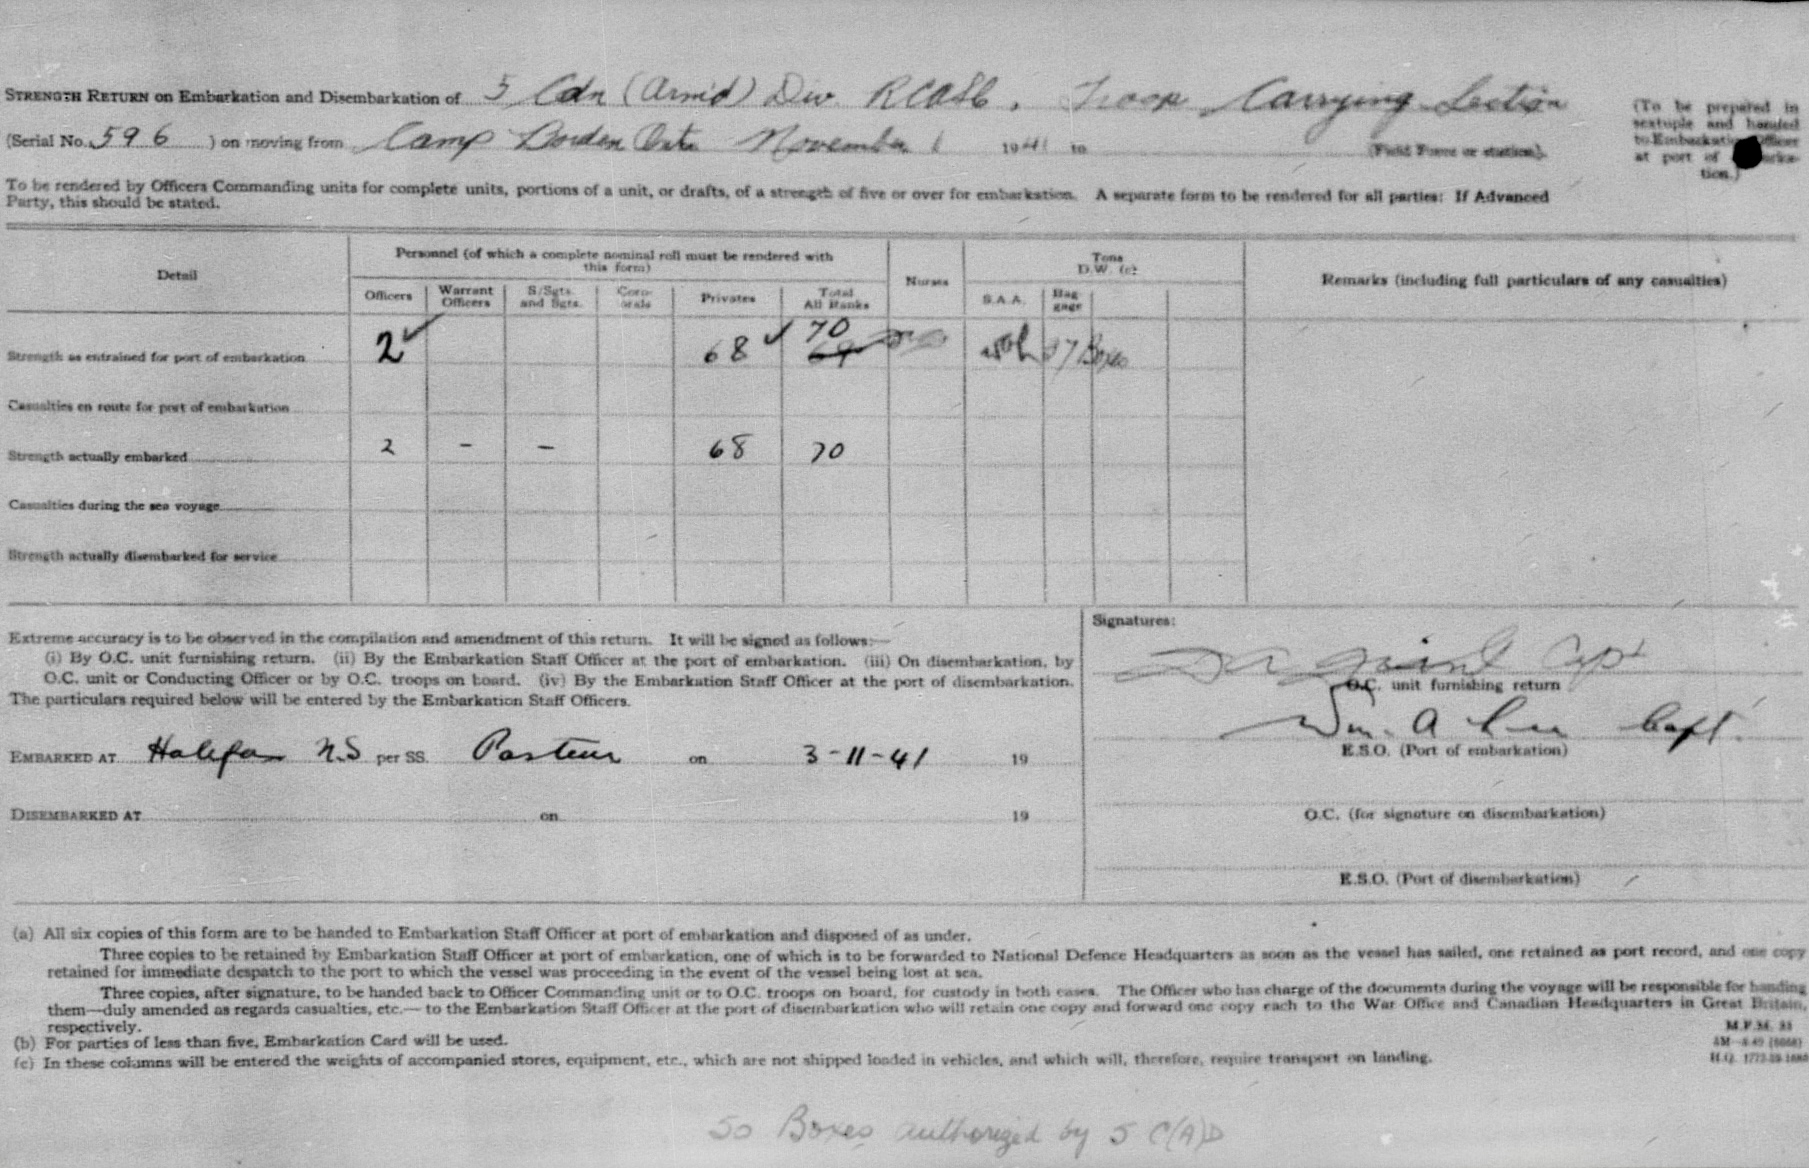 STRENGTH RETURN on Embarkation and Disembarkation of 5 Cdn (Arm'd) Div. RCASC, Troop Carrying Section
(To be prepared in sextuple and handed to Embarkation Officer at port of tion.)
(Serial No. 596) on moving from Camp Borden Ont. November 1 1941 to (Field Force or station).
To be rendered by Officers Commanding units for complete units, portions of a unit, or drafts, of a strength of five or over for embarkation. A separate form to be rendered for all parties: If Advanced
Party, this should be stated.
Detail
Personnel (of which a complete nominal roll must be rendered with
this form)
Nurses
Tons
D.W. (c)
Remarks (including full particulars of any casualties)
Officers Warrant Officers S/Sgts. and Sgts. Corporals Privates Total All Ranks S.A.A. Baggage
70
Strength as entrained for port of embarkation 2 68 69 Boxes
Casualties en route for port of embarkation
Strength actually embarked 2 - - 68 70
Casualties during the sea voyage
Strength actually disembarked for service
Extreme accuracy is to be observed in the compilation and amendment of this return. It will be signed as follows:—
(i) By O.C. unit furnishing return. (ii) By the Embarkation Staff Officer at the port of embarkation. (iii) On disembarkation, by
O.C. unit or Conducting Officer or by O.C. troops on board. (iv) By the Embarkation Staff Officer at the port of disembarkation.
The particulars required below will be entered by the Embarkation Staff Officers.
EMBARKED AT Halifax N.S per SS. Pasteur on 3-11-41 19
DISEMBARKED AT on 19
Signatures:
Capt
O.C. unit furnishing return
Wm. A Capt.
E.S.O. (Port of embarkation)
O.C. (for signature on disembarkation)
E.S.O. (Port of disembarkation)
(a) All six copies of this form are to be handed to Embarkation Staff Officer at port of embarkation and disposed of as under.
Three copies to be retained by Embarkation Staff Officer at port of embarkation, one of which is to be forwarded to National Defence Headquarters as soon as the vessel has sailed, one retained as port record, and one copy
retained for immediate despatch to the port to which the vessel was proceeding in the event of the vessel being lost at sea.
Three copies, after signature, to be handed back to Officer Commanding unit or to O.C. troops on board, for custody in both cases. The Officer who has charge of the documents during the voyage will be responsible for handing
them—duly amended as regards casualties, etc.— to the Embarkation Staff Officer at the port of disembarkation who will retain one copy and forward one copy each to the War Office and Canadian Headquarters in Great Britain,
respectively.
(b) For parties of less than five, Embarkation Card will be used.
(c) In these columns will be entered the weights of accompanied stores, equipment, etc., which are not shipped loaded in vehicles, and which will, therefore, require transport on landing.
H.Q.
50 Boxes authorized by 5 C(A)D